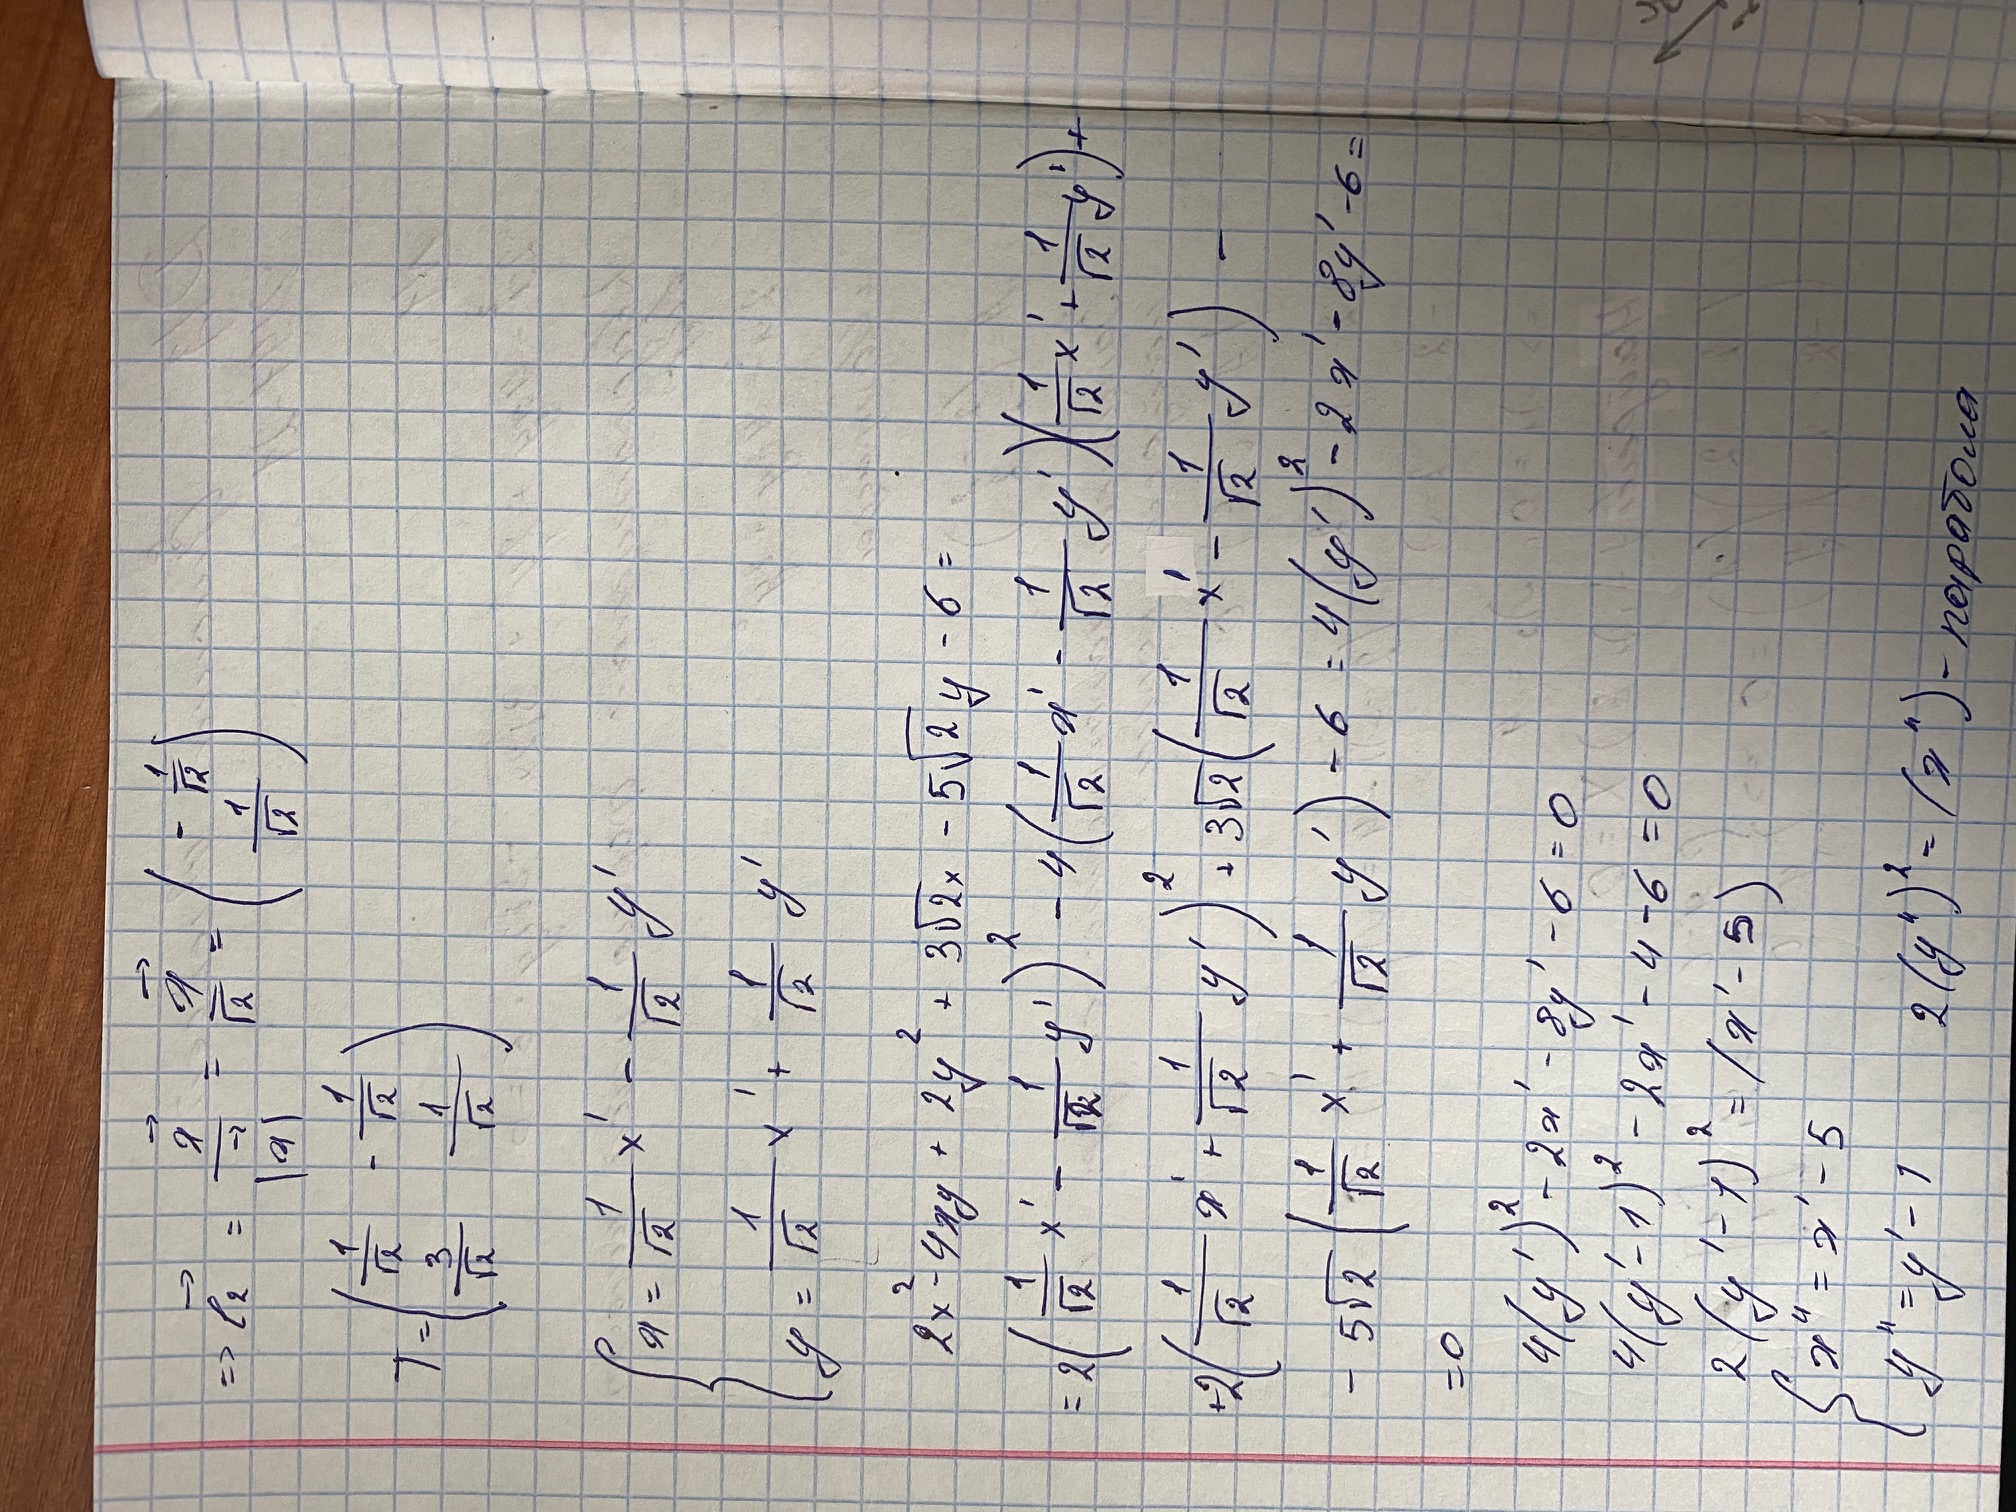 => e₂→ = x→/|x→| = x→/√2 = (-1/√2 1/√2)
T = (1/√2 -1/√2
3/√2 1/√2)
{ x = 1/√2 x' - 1/√2 y'
y = 1/√2 x' + 1/√2 y'
2x² - 4xy + 2y² + 3√2x - 5√2y - 6 =
= 2(1/√2 x' - 1/√2 y')² - 4(1/√2 x' - 1/√2 y')(1/√2 x' + 1/√2 y') +
+2(1/√2 x' + 1/√2 y')² + 3√2(1/√2 x' - 1/√2 y') -
- 5√2(1/√2 x' + 1/√2 y') - 6 = 4(y')² - 2x' - 8y' - 6 =
=0
4(y')² - 2x' - 8y' - 6 = 0
4(y'-1)² - 2x' - 4 - 6 = 0
2(y'-1)² = (x'-5)
{ x" = x' - 5
y" = y' - 1 2(y")² = (x") - парабола